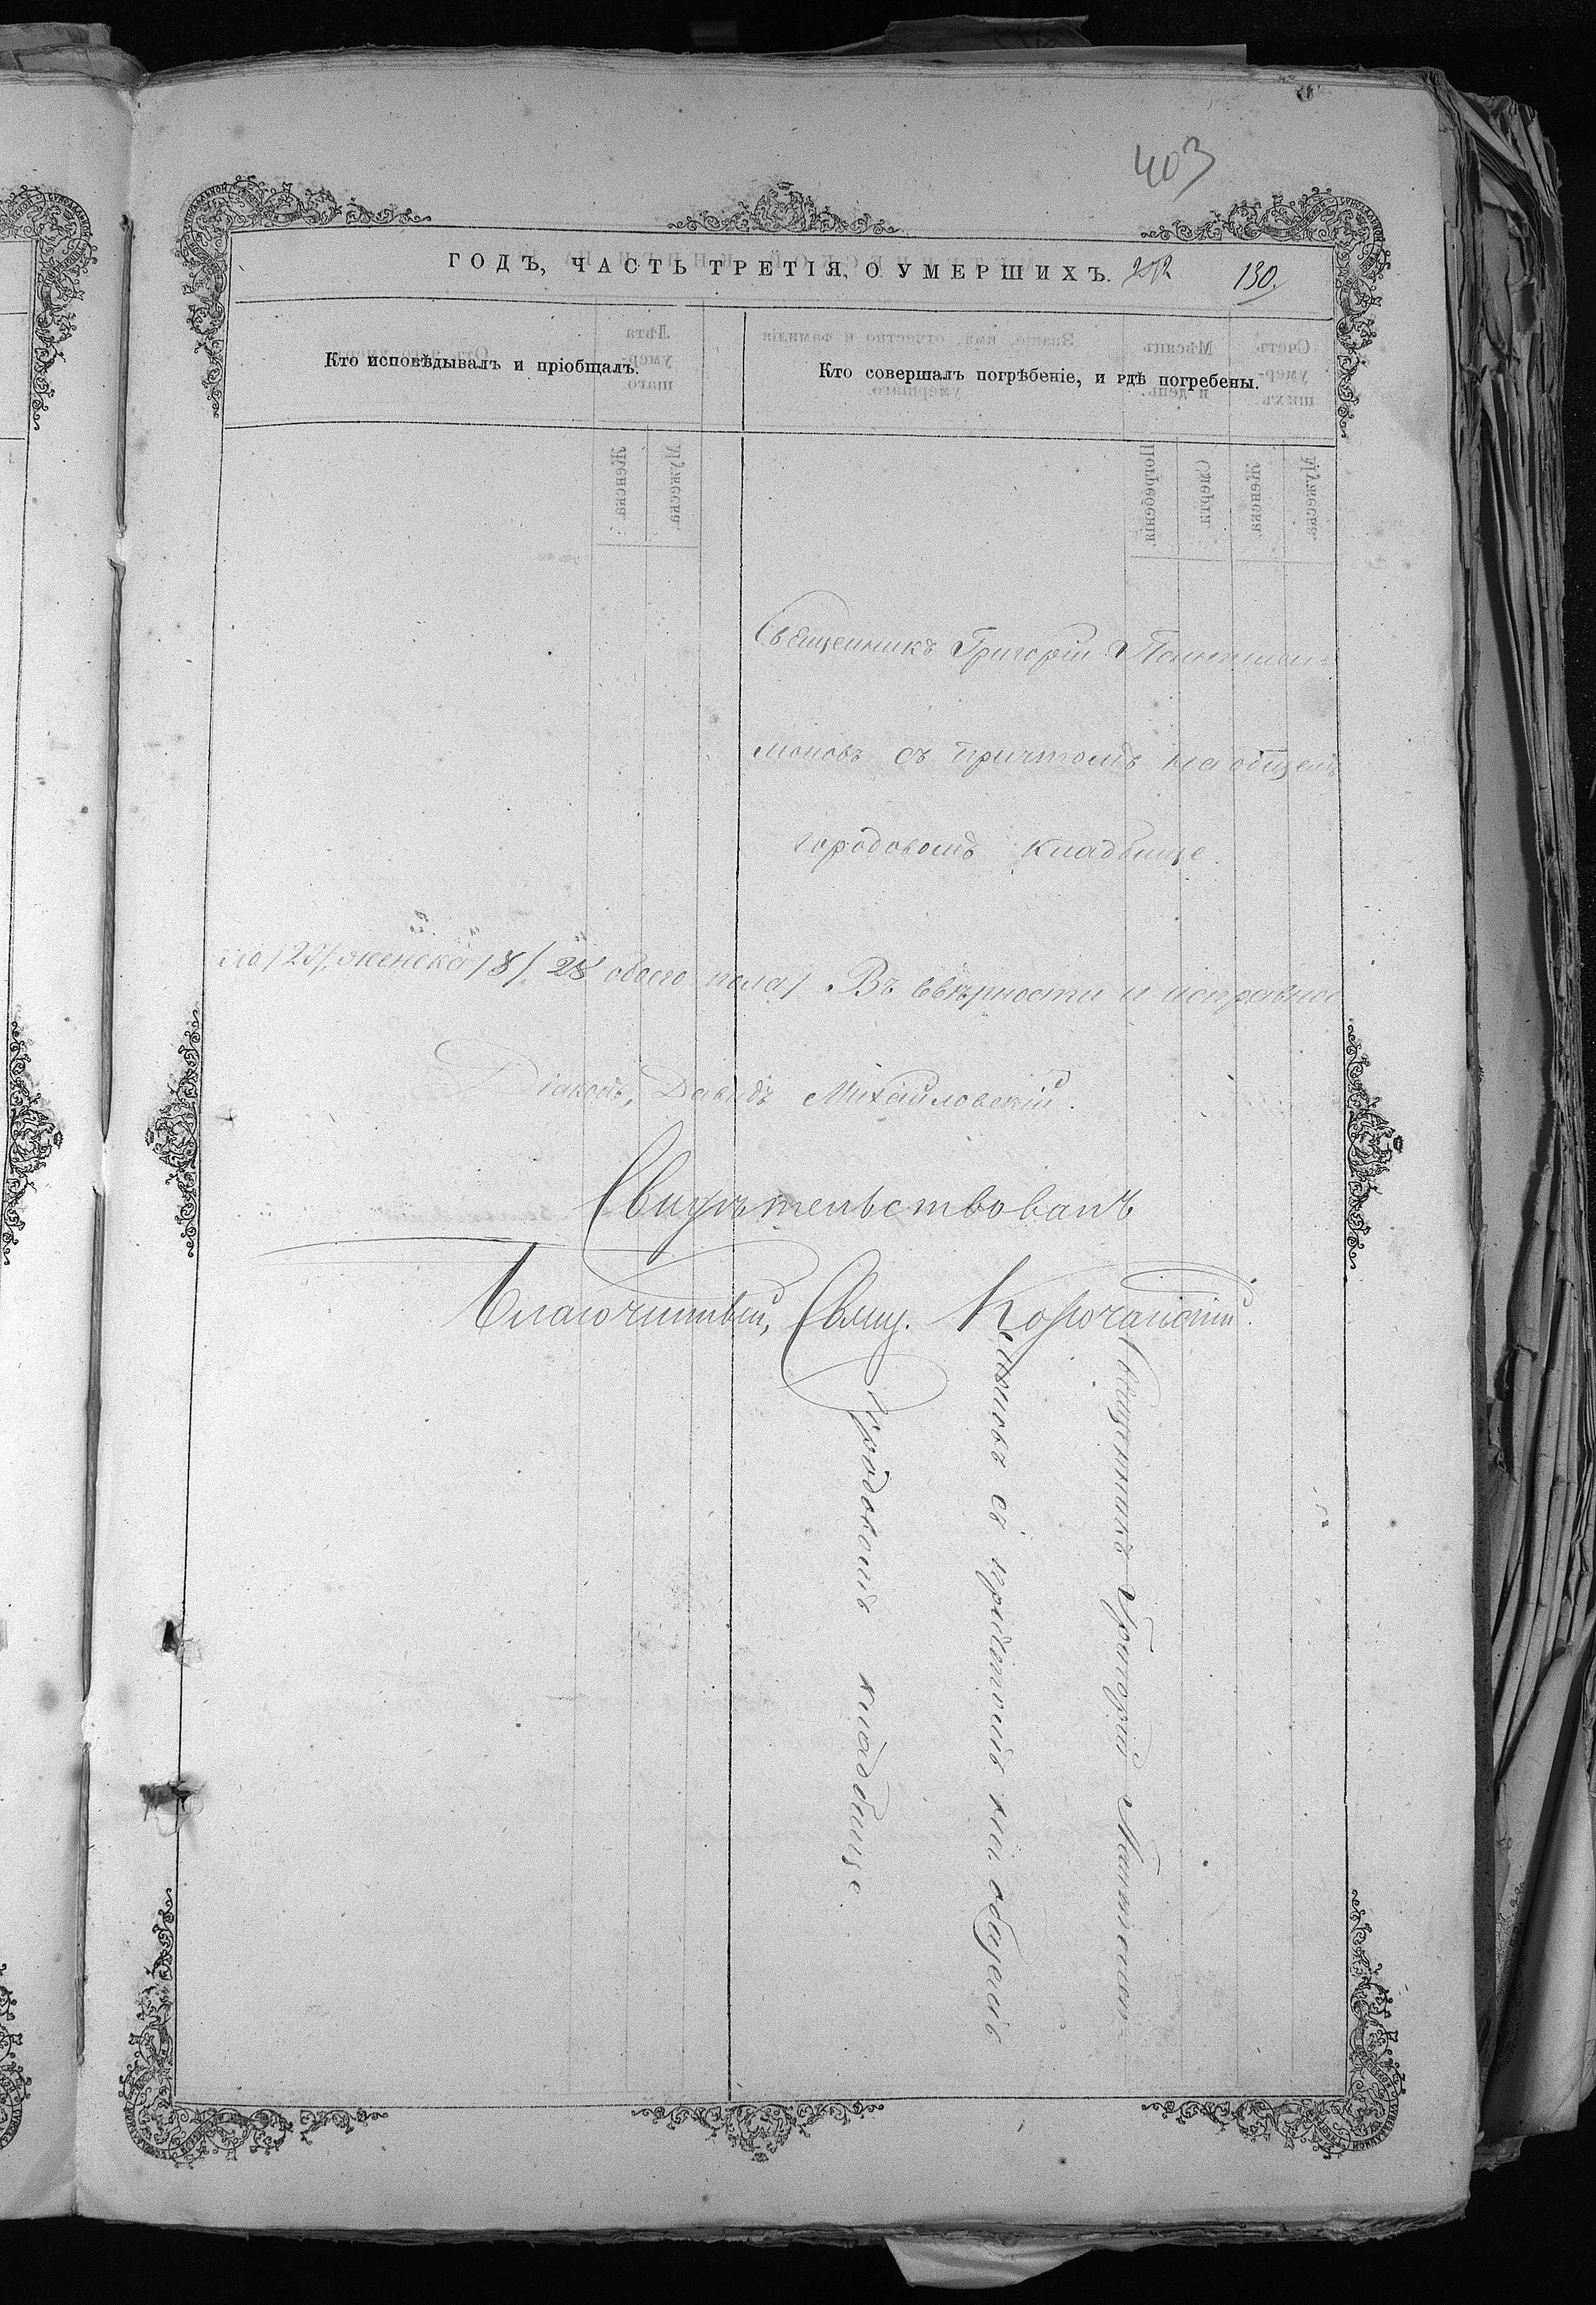 403
ГОДЪ, ЧАСТЬ ТРЕТІЯ, О УМЕРШИХЪ. 130.
Кто исповѣдывалъ и пріобщалъ.
Кто совершалъ погрѣбеніе, и гдѣ погребены.
Священникъ Григорій Пантили=
моновъ съ причтомъ на общемъ
городовомъ кладбище.
ла /20/, женска /8/ 28 обоего пола/ Въ вѣрности и исправнос
Діаконъ, Давидъ Михайловскій.
Свидѣтельствовалъ
Благочинный, Свящ. Корочанскій.
Священникъ Григорій Пантелии-
моновъ съ причтомъ на общемъ
городовомъ кладбище.